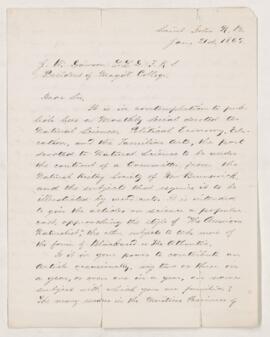 Saint John N. B.
Jany 21st 1865
J. W. Dawson LLD F.R.S
President of McGill College.
Dear Sir,
It is in contemplation to pub-
lish here a Monthly Serial devoted to
Natural Science, Political Economy, Edu-
cation, and the Families Arts, the part
devoted to Natural Science to be under
the control of a Committee from the
Natural History Society of New Brunswick,
and the subject that requires it to be
illustrated by wood cuts. It is intended
to give the articles on science a popular
cast approaching the style of "The Canadian
Naturalist", the other subjects to take more of
the form of Blackwood or the Atlantic.
Is it in your power to contribute an
Article occasionally, say two or three in
a year, or even one in a year, on some
subject with which you are familiar?
The many readers in the Maritime Provinces of